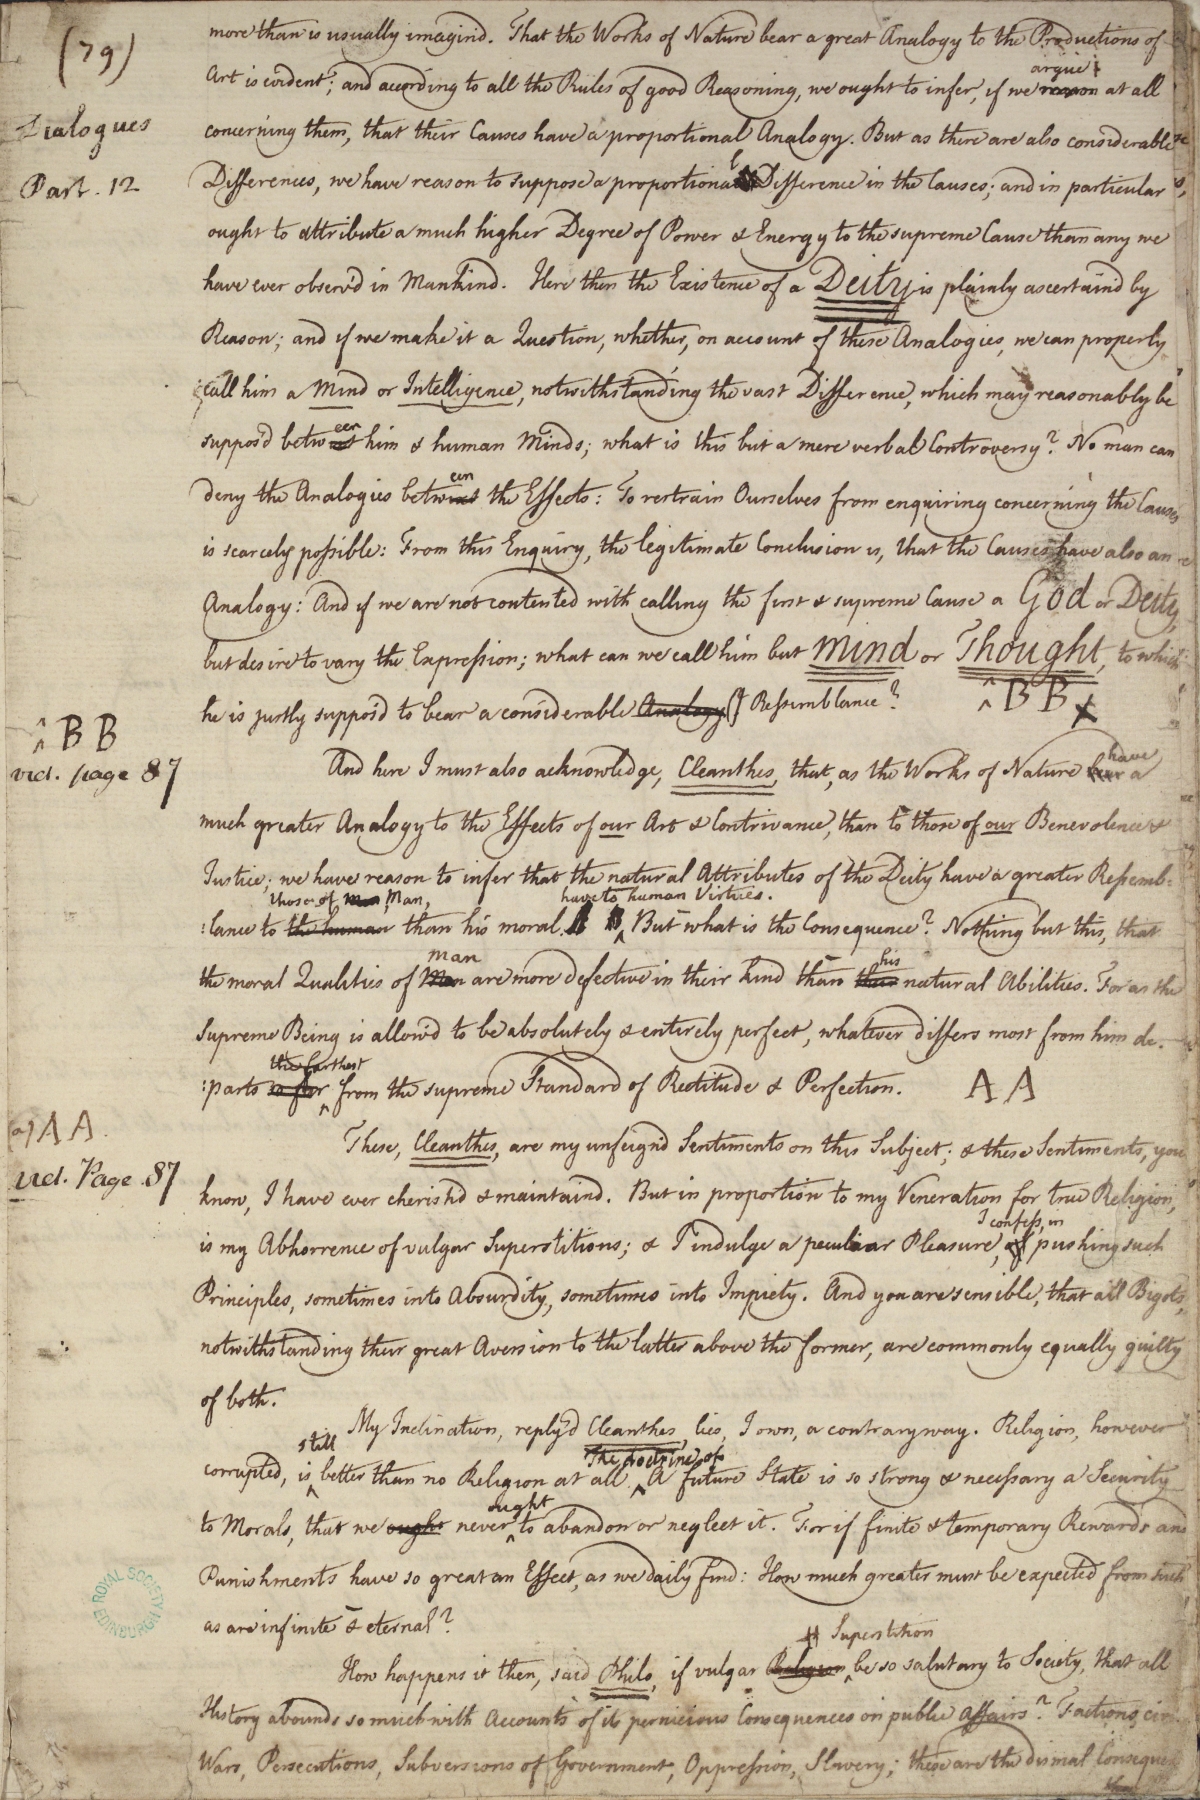 (79)
Dialogues
Part. 12
more than is usually imagin'd. That the Works of Nature bear a great Analogy to the Productions of
argue
Art is evident; and according to all the Rules of good Reasoning, we ought to infer, if we reason at all
concerning them, that their Causes have a proportional Analogy. But as there are also considerable
Differences, we have reason to suppose a proportional Difference in the Causes; and in particular
ought to attribute a much higher Degree of Power & Energy to the supreme Cause than any we
have ever observ'd in Mankind. Here then the Existence of a Deity is plainly ascertain'd by
Reason; and if we make it a Question, whether, on account of these Analogies, we can properly
call him a Mind or Intelligence, notwithstanding the vast Difference, which may reasonably be
een
suppos'd betwixt him & human Minds; what is this but a mere verbal Controversy? No man can
een
deny the Analogies betwixt the Effects: To restrain Ourselves from enquiring concerning the Causes
is scarcely possible: From this Enquiry, the legitimate Conclusion is, that the Causes have also an
Analogy: And if we are not contented with calling the first & supreme Cause a God or Deity,
but desire to vary the Expression; what can we call him but Mind or Thought, to which
he is justly suppos'd to bear a considerable Analogy Resemblance? ^ BB
^ BB
vid. page 87
have
And here I must also acknowledge, Cleanthes, that, as the Works of Nature bear a
much greater Analogy to the Effects of our Art & Contrivance, than to those of our Benevolence &
Justice; we have reason to infer that the natural Attributes of the Deity have a greater Resemb-
those of Men Man, have to human Virtues.
:lance to the human than his moral. But what is the Consequence? Nothing but this, that
man his
the moral Qualities of Men are more defective in their kind than their natural Abilities. For as the
Supreme Being is allow'd to be absolutely & entirely perfect, whatever differs most from him de-
the farthest
:parts so far ^ from the supreme Standard of Rectitude & Perfection. AA
AA
vid. Page 87
These, Cleanthes, are my unfeign'd Sentiments on this Subject; & these Sentiments, you
know, I have ever cherish'd & maintain'd. But in proportion to my Veneration for true Religion,
I confess, in
is my Abhorrence of vulgar Superstitions; & I indulge a peculiar Pleasure, of pushing such
Principles, sometimes into Absurdity, sometimes into Impiety. And you are sensible, that all Bigots,
notwithstanding their great Aversion to the latter above the former, are commonly equally guilty
of both.
My Inclination, reply'd Cleanthes, lies, I own, a contrary way. Religion, however
still The Doctrine of
corrupted, is ^ better than no Religion at all. ^ A future State is so strong & necessary a Security
ought
to Morals, that we ought never ^ to abandon or neglect it. For if finite & temporary Rewards and
Punishments have so great an Effect, as we daily find: How much greater must be expected from such
as are infinite & eternal?
Superstition
How happens it then, said Philo, if vulgar Religion ^ be so salutary to Society, that all
History abounds so much with Accounts of its pernicious Consequences on public Affairs? Factions, civil
Wars, Persecutions, Subversions of Government, Oppression, Slavery; these are the dismal Consequen
ROYAL SOCIETY
EDINBURGH